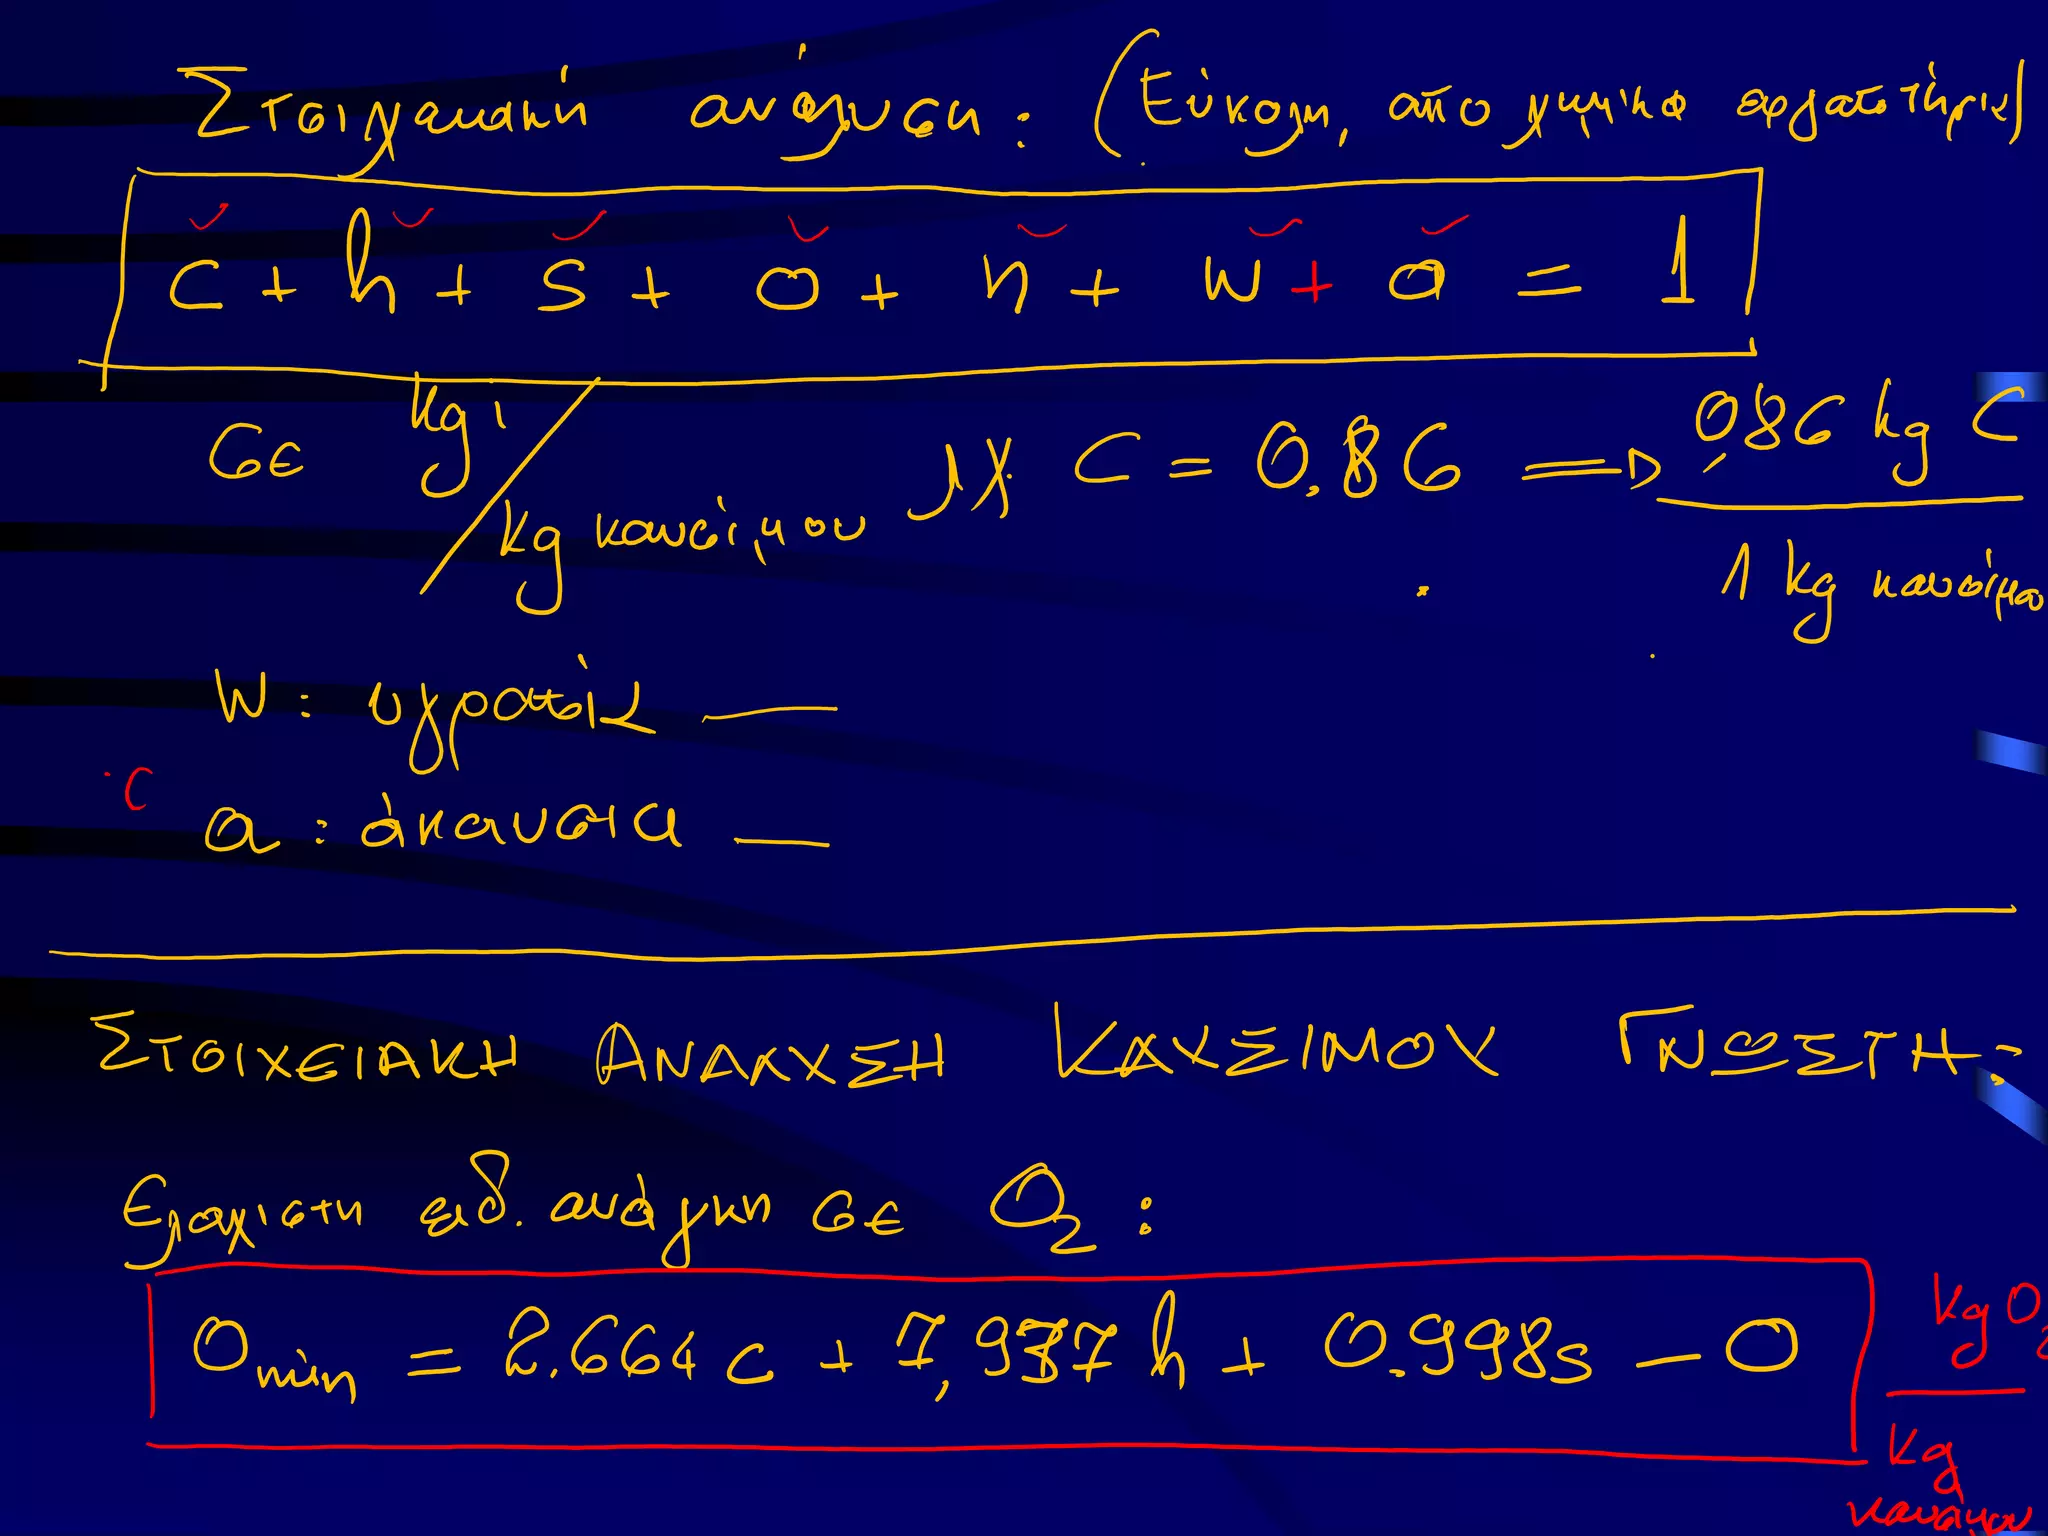 Στοιχειακή ανάλυση: (Εύκολη, από χημικά εργαστήρια)
c + h + s + o + n + w + a = 1
σε kg i / kg καυσίμου π.χ. C = 0.86 ⇒ 0,86 kg C / 1 kg καυσίμου
w: υγρασία —
a: άκαυστα —
ΣΤΟΙΧΕΙΑΚΗ ΑΝΑΛΥΣΗ ΚΑΥΣΙΜΟΥ ΓΝΩΣΤΗ:
Ελάχιστη ειδ. ανάγκη σε O2:
Omin = 2.664 c + 7,937 h + 0.998s - O kg O2 / kg καυσίμου